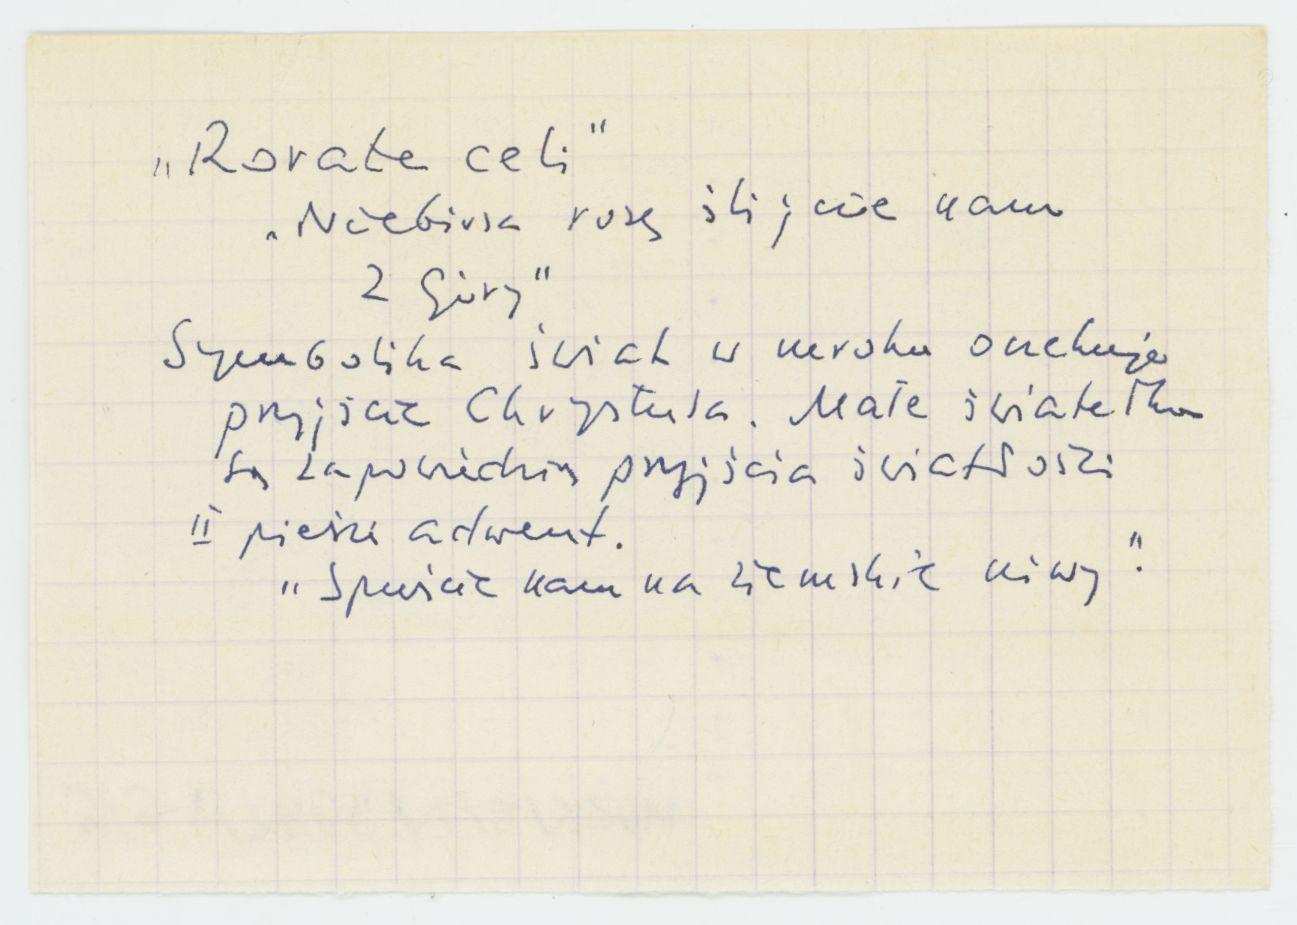 „Rorate celi"
„Niebiosa rosę ślijcie nam
z góry"
Symbolika świat w mroku oczekuje
przyjście Chrystusa. Małe światełka
są zapowiedzią przyjścia światłości
II pieśń adwent.
„Spuście nam na ziemskie niwy".